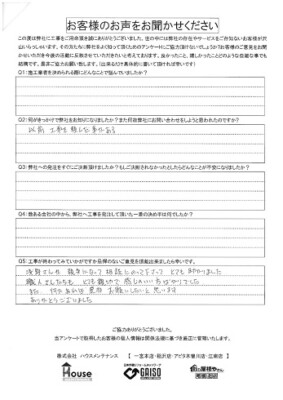 お客様のお声をお聞かせください
この度は弊社に工事をご依頼頂き誠にありがとうございました。世の中には弊社の存在やサービスをご存知ないお客様が沢
山いらっしゃいます。その方たちに弊社をよく知って頂くためのアンケートにご協力頂けないでしょうか？お客様のご意見をお聞
かせいただき今後の活動に反映させていただきたいと考えております。良かったこと、嬉しかったことなどどのような些細な事でも
結構です。是非ご協力お願い致します。
Q1：施工業者を決められる際にどんなことで悩んでいましたか？
Q2：何がきっかけで弊社をお知りになりましたか？また何故弊社にお問い合わせをしようと思われたのですか？
以前 工事を頼んだ事がある
Q3：弊社への発注をすぐにご決断頂けましたか？もしご決断されなかったとしたらどんなことが不安になりましたか？
Q4：数ある会社の中から、弊社へ工事を発注して頂いた一番の決め手は何でしたか？
Q5：工事が終わってみていかがですか忌憚のないご意見を頂戴出来ましたら幸いです。
親身になって 相談にのって とても
職人さんたちも とても親切で 感じのいい
また 何か あれば 是非 お願いしたいと思います
ありがとうございました
ご協力ありがとうございました。
当アンケートで取得したお客様の個人情報は関係法規に基づき厳正に管理いたします。
株式会社 ハウスメンテナンス
House
GAISO